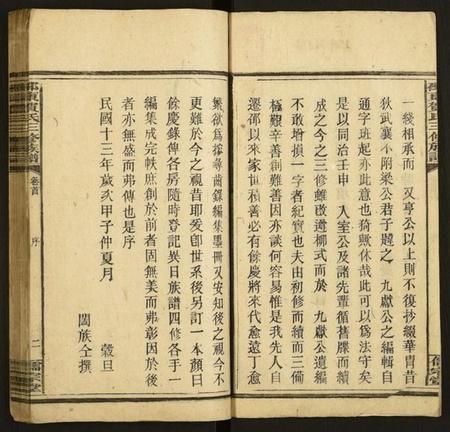 一綫相承而　又亨公以上則不復抄綴華胄昔
狄武襄不附梁公君子趨之　九獻公之編輯自
通字班起亦此意也猗歟休哉此可以為法守矣
是以同治壬申　入室公及諸先輩循舊牒而續
成之今之三修雖改遵鄉式而於　九獻公遺編
不敢增損一字者紀實也夫由初修而續而三備
極艱辛善創難善因亦談何容易惟是我先人自
遷邵以來家世積善必有餘慶將來代愈遠丁愈
繁欲為撐尋前錄編集墨冊又安知後之視今不
更難於今之視昔耶爰卽世系後另訂一本顏曰
餘慶錄俾各房隨時登記異日族譜四修各手一
編集成完帙庶創於前者固無美而弗彰因於後
者亦無盛而弗傳也是序
民國十三年歲次甲子仲夏月　　穀旦
闔族仝撰
邵東賀氏三修族譜
卷首
序
二